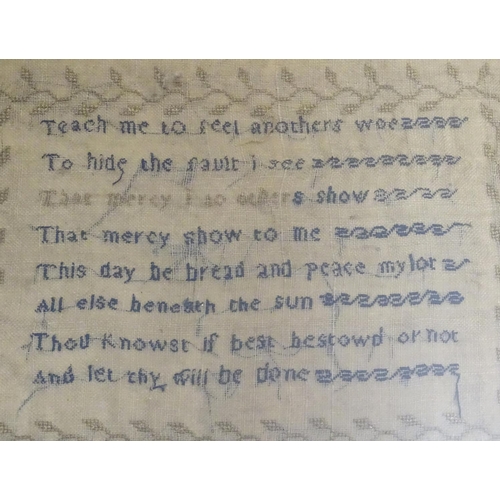 Teach me to feel anothers woe
To hide the fault i see
That mercy i to others show
That mercy show to me
This day be bread and peace my lot
All else beneath the sun
Thou Knowst if best bestowd or not
And let thy will be done